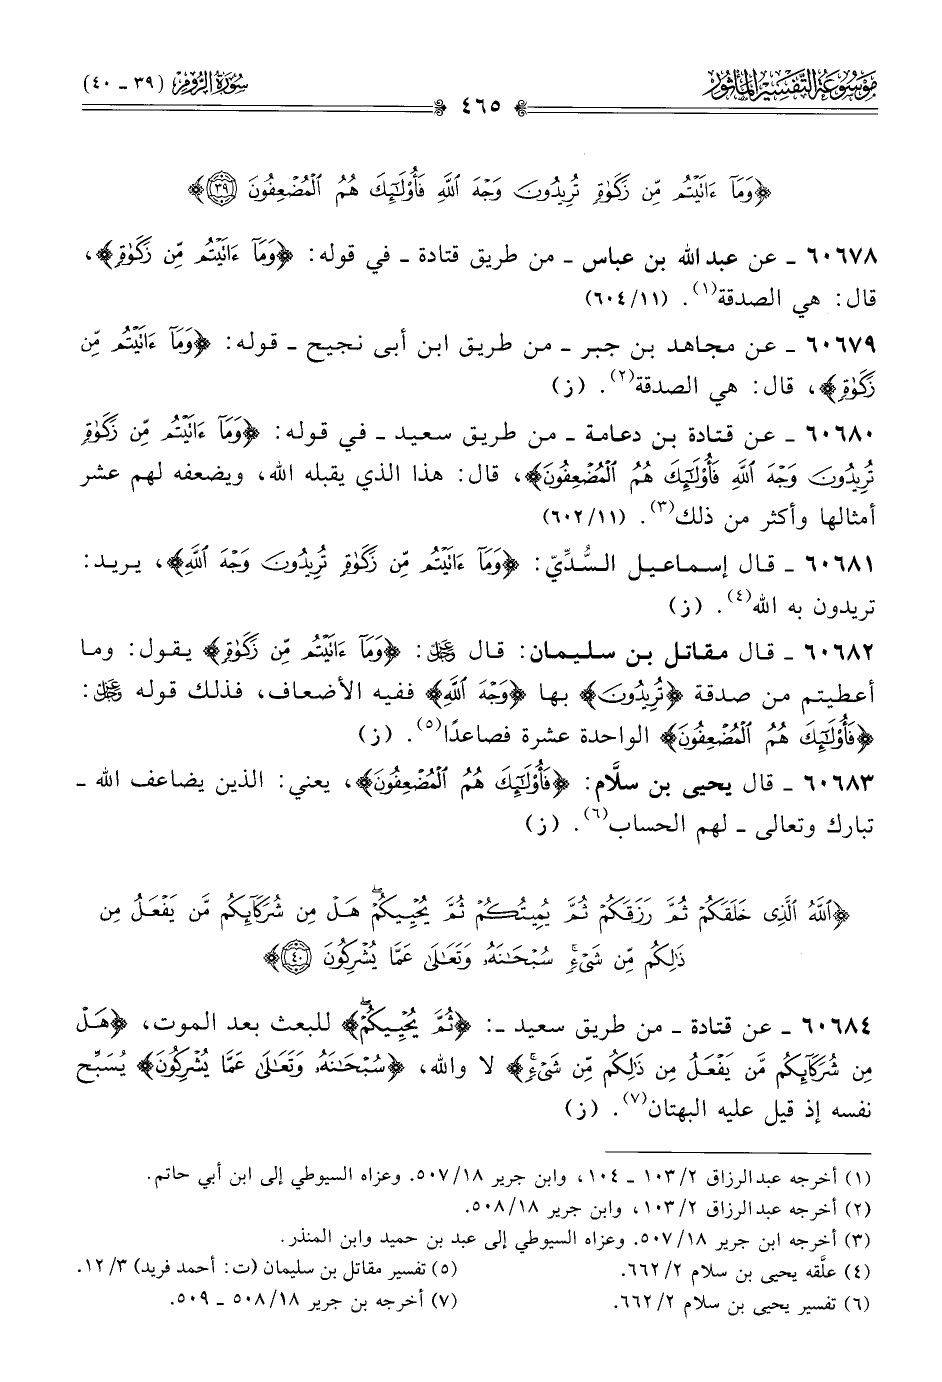 موسوعة التفسير المأثور
سورة الروم (٣٩ - ٤٠)
٤٦٥
﴿وَمَآ ءَاتَيْتُم مِّن زَكَوٰةٍ تُرِيدُونَ وَجْهَ ٱللَّهِ فَأُو۟لَٰٓئِكَ هُمُ ٱلْمُضْعِفُونَ ٣٩﴾
٦٠٦٧٨ ـ عن عبد الله بن عباس ـ من طريق قتادة ـ في قوله: ﴿وَمَآ ءَاتَيْتُم مِّن زَكَوٰةٍ﴾،
قال: هي الصدقة(١). (٦٠٤/١١)
٦٠٦٧٩ ـ عن مجاهد بن جبر ـ من طريق ابن أبي نجيح ـ قوله: ﴿وَمَآ ءَاتَيْتُم مِّن
زَكَوٰةٍ﴾، قال: هي الصدقة(٢). (ز)
٦٠٦٨٠ ـ عن قتادة بن دعامة ـ من طريق سعيد ـ في قوله: ﴿وَمَآ ءَاتَيْتُم مِّن زَكَوٰةٍ
تُرِيدُونَ وَجْهَ ٱللَّهِ فَأُو۟لَٰٓئِكَ هُمُ ٱلْمُضْعِفُونَ﴾، قال: هذا الذي يقبله الله، ويضعفه لهم عشر
أمثالها وأكثر من ذلك(٣). (٦٠٢/١١)
٦٠٦٨١ ـ قال إسماعيل السُّدِّيّ: ﴿وَمَآ ءَاتَيْتُم مِّن زَكَوٰةٍ تُرِيدُونَ وَجْهَ ٱللَّهِ﴾، يريد:
تريدون به الله(٤). (ز)
٦٠٦٨٢ ـ قال مقاتل بن سليمان: قال ﷿: ﴿وَمَآ ءَاتَيْتُم مِّن زَكَوٰةٍ﴾ يقول: وما
أعطيتم من صدقة ﴿تُرِيدُونَ﴾ بها ﴿وَجْهَ ٱللَّهِ﴾ ففيه الأضعاف، فذلك قوله ﷿:
﴿فَأُو۟لَٰٓئِكَ هُمُ ٱلْمُضْعِفُونَ﴾ الواحدة عشرة فصاعدًا(٥). (ز)
٦٠٦٨٣ ـ قال يحيى بن سلَّام: ﴿فَأُو۟لَٰٓئِكَ هُمُ ٱلْمُضْعِفُونَ﴾، يعني: الذين يضاعف الله ـ
تبارك وتعالى ـ لهم الحساب(٦). (ز)
﴿ٱللَّهُ ٱلَّذِى خَلَقَكُمْ ثُمَّ رَزَقَكُمْ ثُمَّ يُمِيتُكُمْ ثُمَّ يُحْيِيكُمْ ۖ هَلْ مِن شُرَكَآئِكُم مَّن يَفْعَلُ مِن
ذَٰلِكُم مِّن شَىْءٍ ۚ سُبْحَٰنَهُۥ وَتَعَٰلَىٰ عَمَّا يُشْرِكُونَ ٤٠﴾
٦٠٦٨٤ ـ عن قتادة ـ من طريق سعيد ـ: ﴿ثُمَّ يُحْيِيكُمْ ۖ﴾ للبعث بعد الموت، ﴿هَلْ
مِن شُرَكَآئِكُم مَّن يَفْعَلُ مِن ذَٰلِكُم مِّن شَىْءٍ ۚ﴾ لا والله، ﴿سُبْحَٰنَهُۥ وَتَعَٰلَىٰ عَمَّا يُشْرِكُونَ﴾ يُسَبِّح
نفسه إذ قيل عليه البهتان(٧). (ز)
(١) أخرجه عبدالرزاق ١٠٣/٢ ـ ١٠٤، وابن جرير ٥٠٧/١٨. وعزاه السيوطي إلى ابن أبي حاتم.
(٢) أخرجه عبدالرزاق ١٠٣/٢، وابن جرير ٥٠٨/١٨.
(٣) أخرجه ابن جرير ٥٠٧/١٨. وعزاه السيوطي إلى عبد بن حميد وابن المنذر.
(٤) علَّقه يحيى بن سلام ٦٦٢/٢. (٥) تفسير مقاتل بن سليمان (ت: أحمد فريد) ١٢/٣.
(٦) تفسير يحيى بن سلام ٦٦٢/٢. (٧) أخرجه بن جرير ٥٠٨/١٨ ـ ٥٠٩.